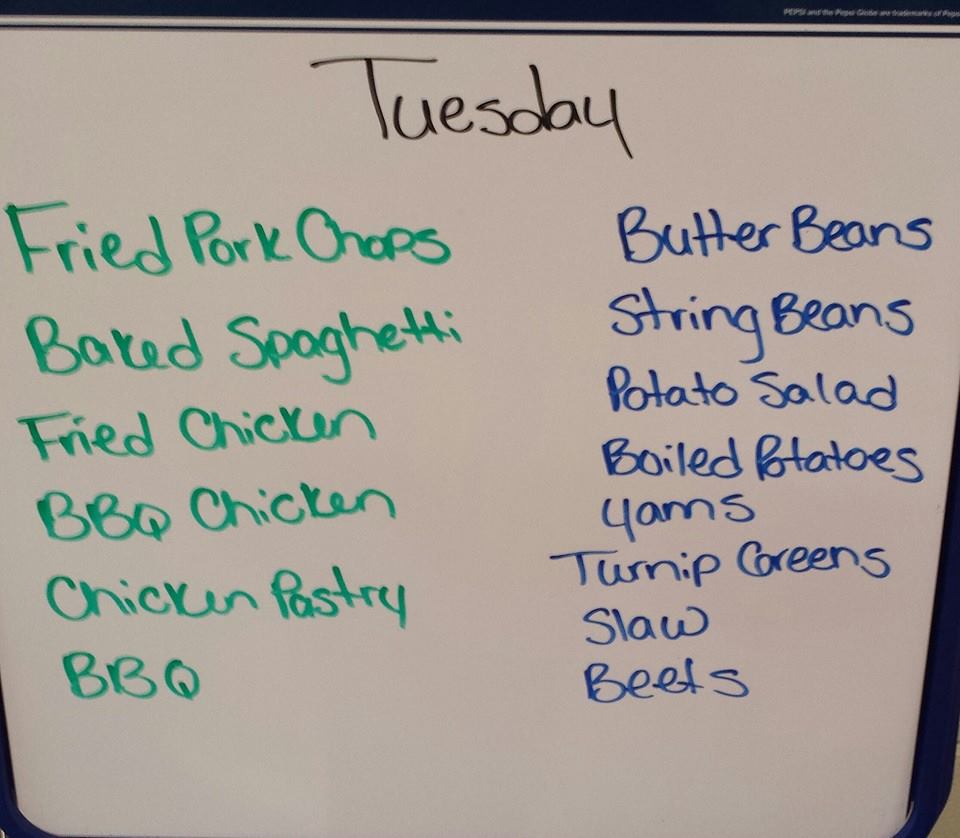 PEPSI and the Pepsi Globe are trademarks of Peps
Tuesday
Fried Pork Chops
Baked Spaghetti
Fried Chicken
BBQ Chicken
Chicken Pastry
BBQ
Butter Beans
String Beans
Potato Salad
Boiled Potatoes
Yams
Turnip Greens
Slaw
Beets